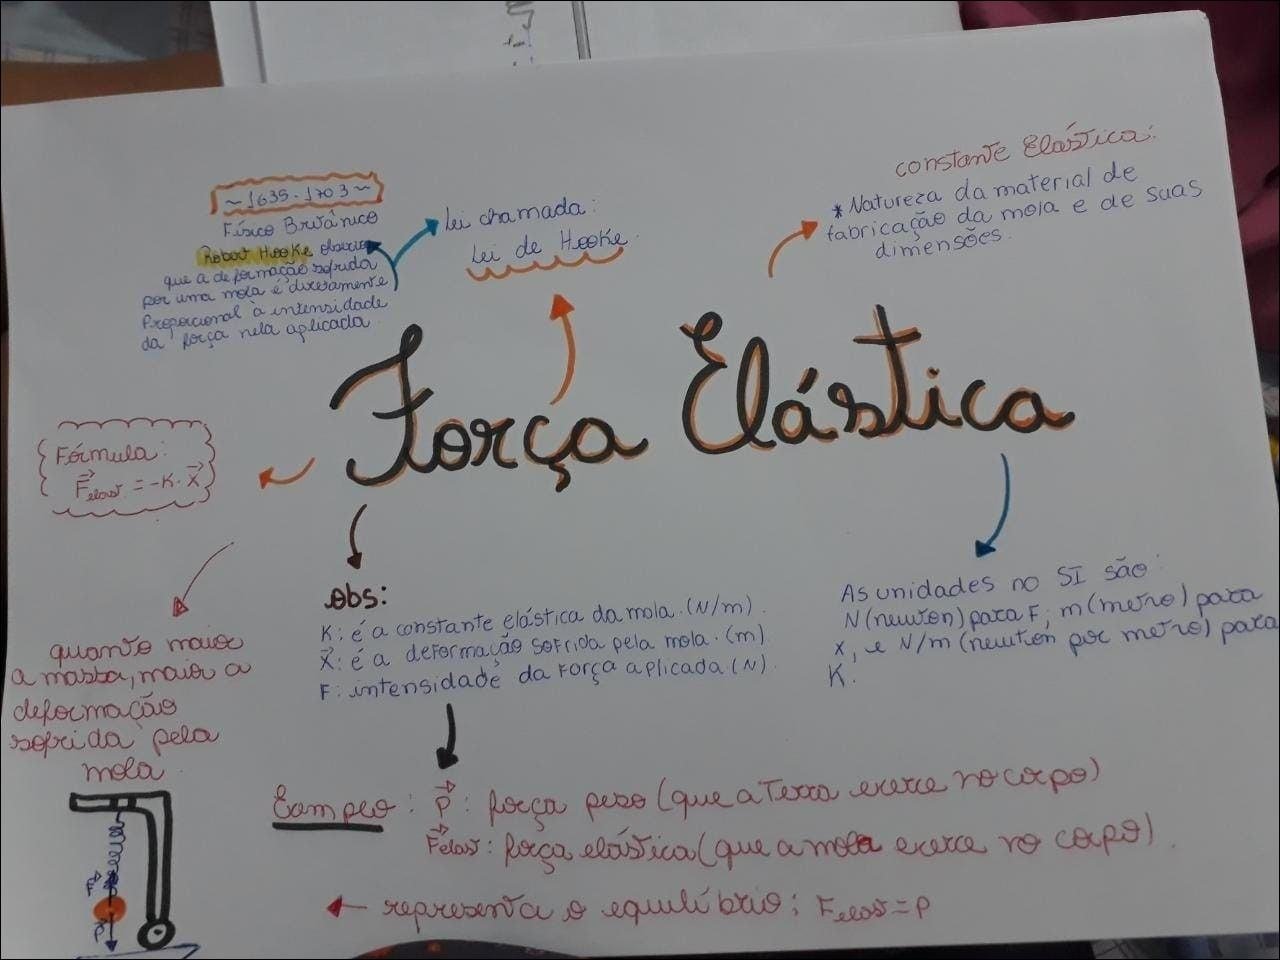 ~ 1635 - 1703 ~
Físico Britânico
Robert Hooke observou
que a deformação sofrida
por uma mola é diretamente
Proporcional à intensidade
da força nela aplicada.
Lei chamada:
Lei de Hooke.
constante Elástica:
* Natureza da material de
fabricação da mola e de suas
dimensões.
Força Elástica
Fórmula:
F⃗elast. = -K · X⃗
quanto maior
a massa, maior a
deformação
sofrida pela
mola.
obs:
K: é a constante elástica da mola. (N/m).
X⃗: é a deformação sofrida pela mola. (m).
F: intensidade da Força aplicada (N).
As unidades no SI são:
N (newton) para F; m (metro) para
x, e N/m (newton por metro) para
K.
Exmpeo: P⃗: força peso (que a Terra exerce no corpo)
F⃗elast: força elástica (que a mola exerce no corpo).
representa o equilíbrio: Felast = P
F⃗
P⃗